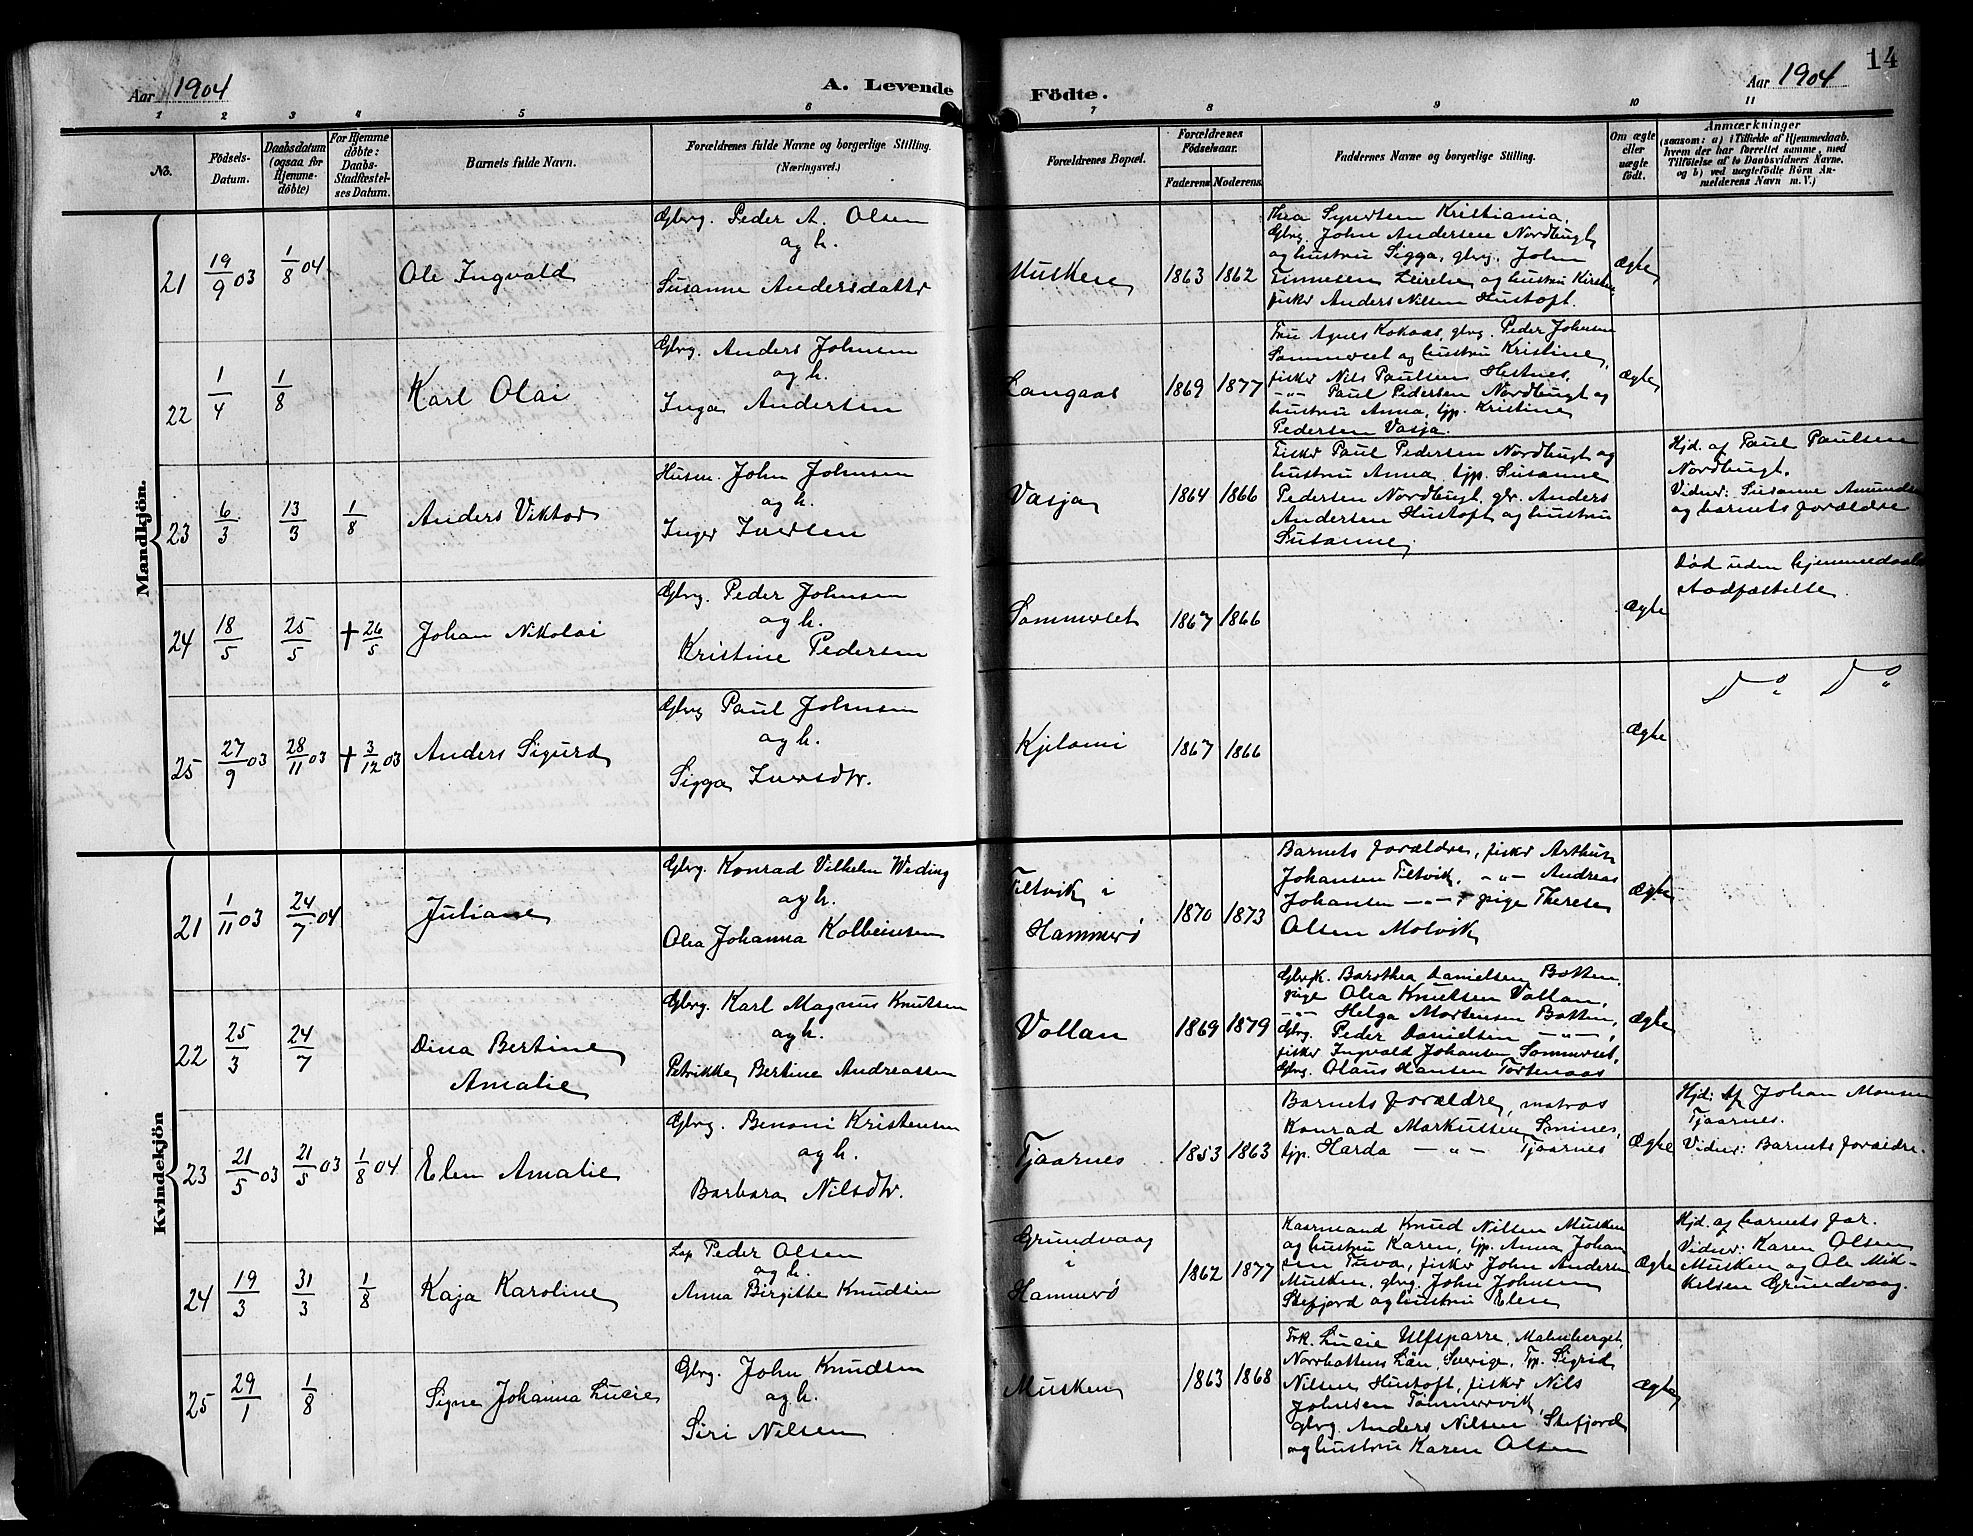 14
Aar 1904
A. Levende Födte.
Aar 1904
1 2 3 4 5 6 7 8 9 10 11
No.
Födsels-
Datum.
Daabsdatum
(ogsaa for
Hjemme-
döbte)
For Hjemme
döbte:
Daabs-
Stadfæstel-
ses Datum.
Barnets fulde Navn.
Forældrenes fulde Navne og borgerlige Stilling.
(Næringsvei.)
Forældrenes Bopæl.
Forældrenes
Födselsaar.
Faderens Moderens
Faddernes Navne og borgerlige Stilling.
Om ægte
eller
uægte
födt.
Anmærkninger
(saasom: a) i Tilfælde af Hjemmedaab.
hvem der har forrettet samme, med
Tilföielse af to Daabsvidners Navne.
og b) ved uægtefödte Börn An-
melderens Navn m. V.)
Mandkjön.
21 19/9 03 1/8 04
Ole Ingvald
Gbrg. Peder A. Olsen
og h.
Susanne Andersdattr
Musken
1863 1862
Thea Syvertsen Kristiania,
Gbrg. John Andersen Nordbugt
og hustru Sigga, gbrg. John
Finnesen og hustru
fisker Anders Nilsen Hustoft.
Ægte
22 1/4 1/8
Karl Olai
Gbrg. Anders Johnsen
og h.
Inga Andersen
Langaas
1869 1877
Fru Agnes Kokaas, gbrg. Peder Johnsen
Sommerset og hustru Kristine,
fisker Nils Paulsen Hestnes,
-"- Paul Pedersen Nordbugt og
hustru Anna, tjp. Kristine
Pedersen Vasja.
Ægte
23 6/3 13/3 1/8
Anders Viktor
Husm. John Johnsen
og h.
Inger Iversen
Vasja
1864 1866
Fisker Paul Pedersen Nordbugt og
hustru Anna, tjp. Susanne
Pedersen Nordbugt, gbr. Anders
Andersen Hustoft og hustru
Susanne
Hjd. af Paul Paulsen
Nordbugt.
Vidner: Susanne Amundsen
og barnets forældre
24 18/5 25/5 † 26/5
Johan Nikolai
Gbrg. Peder Johnsen
og h.
Kristine Pedersen
Sommerset
1867 1866
Ægte
Død uden hjemmedaabs
stadfæstelse
25 27/9 03 28/11 03 † 3/12 03
Anders Sigurd
Gbrg Paul Johnsen
og h.
Sigga Iversdtr.
Kjelomi
1867 1866
Ægte
Do Do
Kvindekjön
21 1/11 03 24/7 04
Juliane
Gbrg. Konrad Vilhelm Weding
og h.
Olea Johanna Kolbeinsen
Tiltvik i
Hammerø
1870 1873
Barnets forældre, fisker Arthur
Johansen Tiltvik, -"- Andreas
Johansen -"-, pige Therese
Olsen Molvik
Ægte
22 25/3 24/7
Dina Bertine
Amalie
Gbrg. Karl Magnus Knutsen
og h.
Petrikke Bertine Andreassen
Vollan
1869 1879
Gbrgk. Barothea Danielsen Botten,
pige Olea Knutsen Vollan,
-"- Helga Mortensen Botten,
Gbrg. Peder Danielsen -"-,
fisker Ingvald Johansen Sommerset,
Gbrg. Olaus Hansen Tørtenaas
Ægte
23 21/5 03 21/5 03 1/8 04
Elen Amalie
Gbrg. Benoni Kristensen
og h.
Barbara Nilsdtr.
Tjaarnes
1853 1863
Barnets forældre, matros
Konrad Markussen Smines,
tjp. Harda -"- Tjaarnes
Ægte
Hjd: af Johan Monsen
Tjaarnes.
Vidner: Barnets forældre.
24 19/3 31/3 1/8
Kaja Karoline
Lap. Peder Olsen
og h.
Anna Birgithe Knudsen
Grundvaag
i
Hammerø
1862 1877
Kaarmand Knud Nilsen Musken
og hustru Karen, tjp. Anna Johan
sen Tuva, fisker John Andersen
Musken, gbrg. John Johnsen
Stefjord og hustru Elen
Ægte
Hjd. af barnets far.
Vidner: Karen Olsen
Musken og Ole Mik-
kelsen Grundvaag.
25 29/1 1/8
Signe Johanna Lucie
Gbrg. John Knudsen
og h.
Siri Nilsen
Musken
1863 1868
Frk. Lucie Ulfsparre, Malmberget,
Norrbottens Län, Sverige, Tjp. Sigrid
Nilsen Hustoft, fisker Nils
Johnsen Tømmervik,
Gbrg. Anders Nilsen Stefjord
og hustru Karen Olsen
Ægte